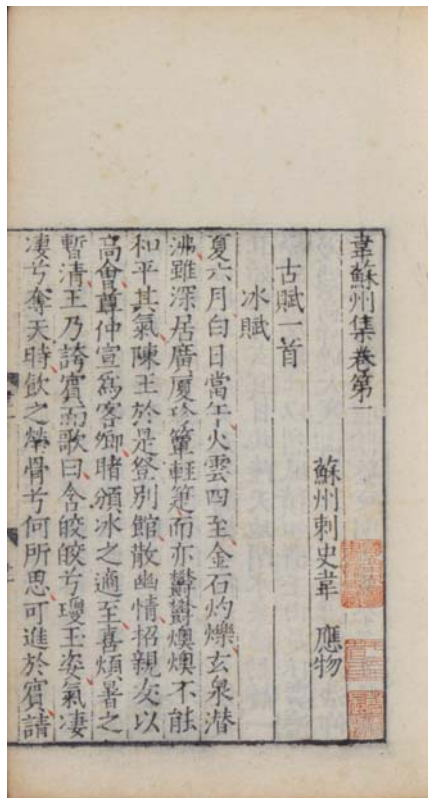 韋蘇州集卷第一
蘇州刺史韋 應物
古賦一首
冰賦
夏六月白日當午火雲四至金石灼爍玄泉潛
沸雖深居廣厦珍簟輕箑而亦鬱鬱燠燠不能
和平其氣陳王於是登別館散幽情招親友以
高會尊仲宣爲客卿睹頒冰之適至喜煩暑之
暫清王乃誇賓而歌曰含皎皎兮瓊玉姿氣凄
凄兮奪天時飲之 骨兮何所思可進於賓請